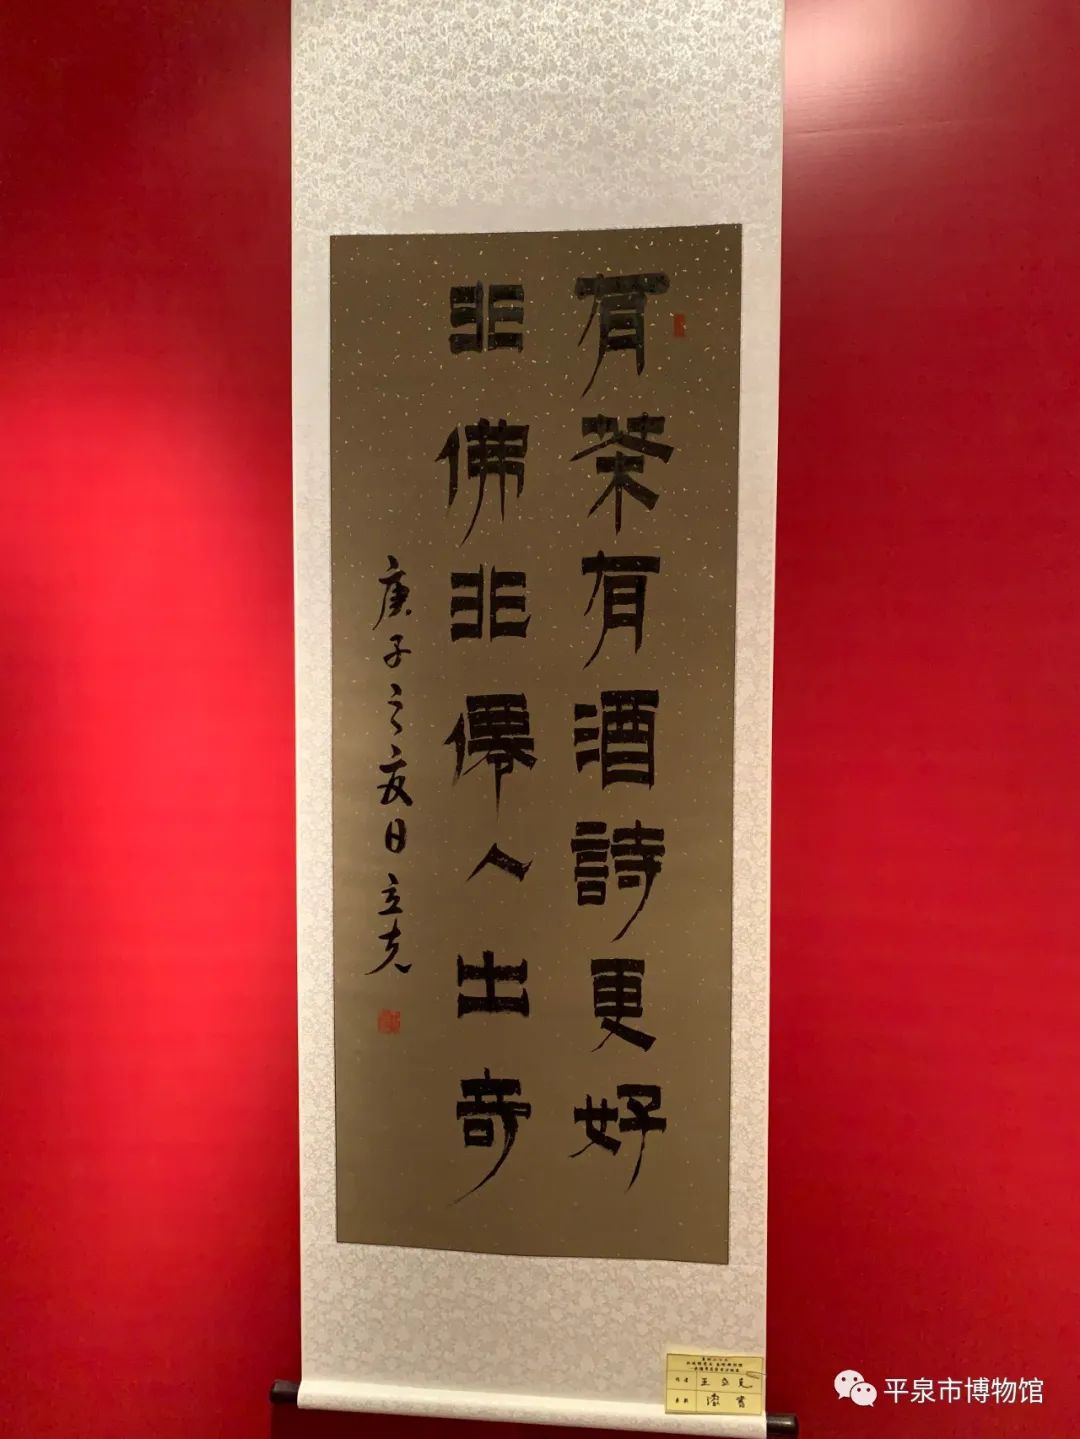 有茶有酒詩更好
非佛非僊人出奇
庚子之夜日立克
漆書
平泉市博物馆